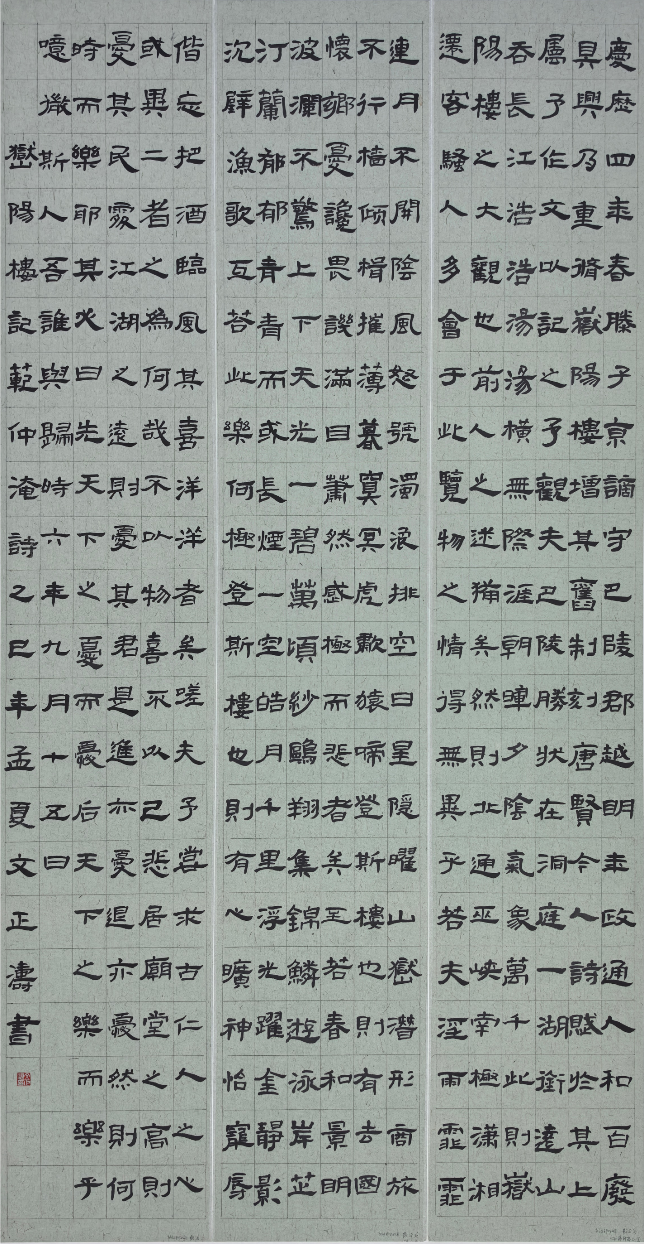 慶歷四年春滕子京謫守巴陵郡越明年政通人和百廢
具興乃重脩嶽陽樓增其舊制刻唐賢今人詩賦於其上
屬予作文以記之予觀夫巴陵勝狀在洞庭一湖銜遠山
吞長江浩浩湯湯橫無際涯朝暉夕陰氣象萬千此則嶽
陽樓之大觀也前人之述備矣然則北通巫峽南極瀟湘
遷客騷人多會于此覽物之情得無異乎若夫淫雨霏霏
連月不開陰風怒號濁浪排空日星隱曜山嶽潛形商旅
不行檣傾楫摧薄暮冥冥虎歗猿啼登斯樓也則有去國
懷鄉憂讒畏譏滿目蕭然感極而悲者矣至若春和景明
波瀾不驚上下天光一碧萬頃紗鷗翔集錦鱗遊泳岸芷
汀蘭郁郁青青而或長煙一空皓月千里浮光躍金靜影
沉璧漁歌互答此樂何極登斯樓也則有心曠神怡寵辱
偕忘把酒臨風其喜洋洋者矣嗟夫予嘗求古仁人之心
或異二者之為何哉不以物喜不以己悲居廟堂之高則
憂其民處江湖之遠則憂其君是進亦憂退亦憂然則何
時而樂耶其必曰先天下之憂而憂后天下之樂而樂乎
噫微斯人吾誰與歸時六年九月十五日
嶽陽樓記範仲淹詩乙巳年孟夏文正濤書